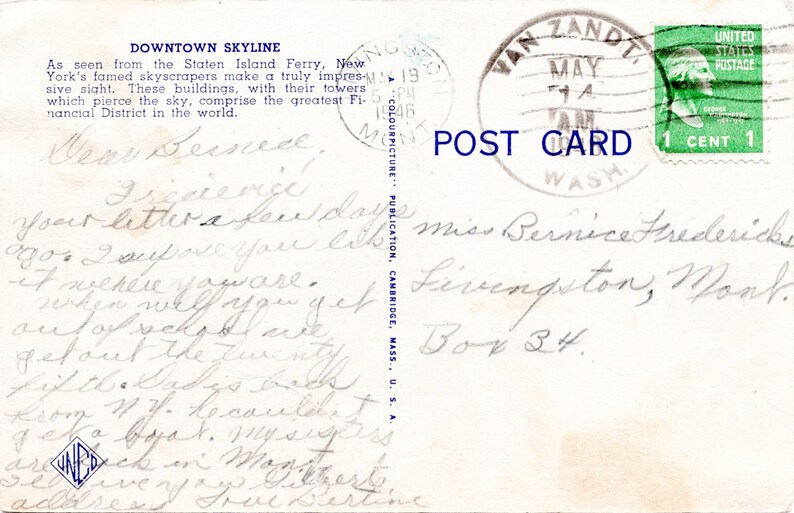 DOWNTOWN SKYLINE
As seen from the Staten Island Ferry, New
York's famed skyscrapers make a truly impres-
sive sight. These buildings, with their towers
which pierce the sky, comprise the greatest Fi-
nancial District in the world.
Dear Bernice
your letter a few days
ago. I supose you like
it where you are.
When will you get
out of school we
get out the twenty
fifth. Dad is back
from N.Y. he couldn't
get a boat. My sisters
are back in Mont
I'll give you
address Love Bertine
JNCO
A "COLOURPICTURE" PUBLICATION, CAMBRIDGE, MASS., U. S. A.
LIVINGSTON
MAY 19
5 PM
1946
MONT.
VAN ZANDT.
MAY
14
A.M.
WASH.
UNITED
STATES
POSTAGE
GEORGE
WASHINGTON
1 CENT 1
POST CARD
Miss Bernice Fredericks
Livingston, Mont.
Box 34.